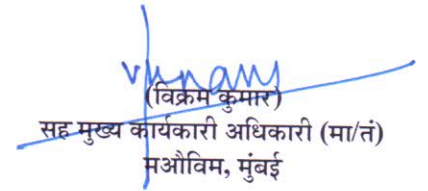 (विक्रम कुमार)
सह मुख्य कार्यकारी अधिकारी (मा/तं)
मऔविम, मुंबई